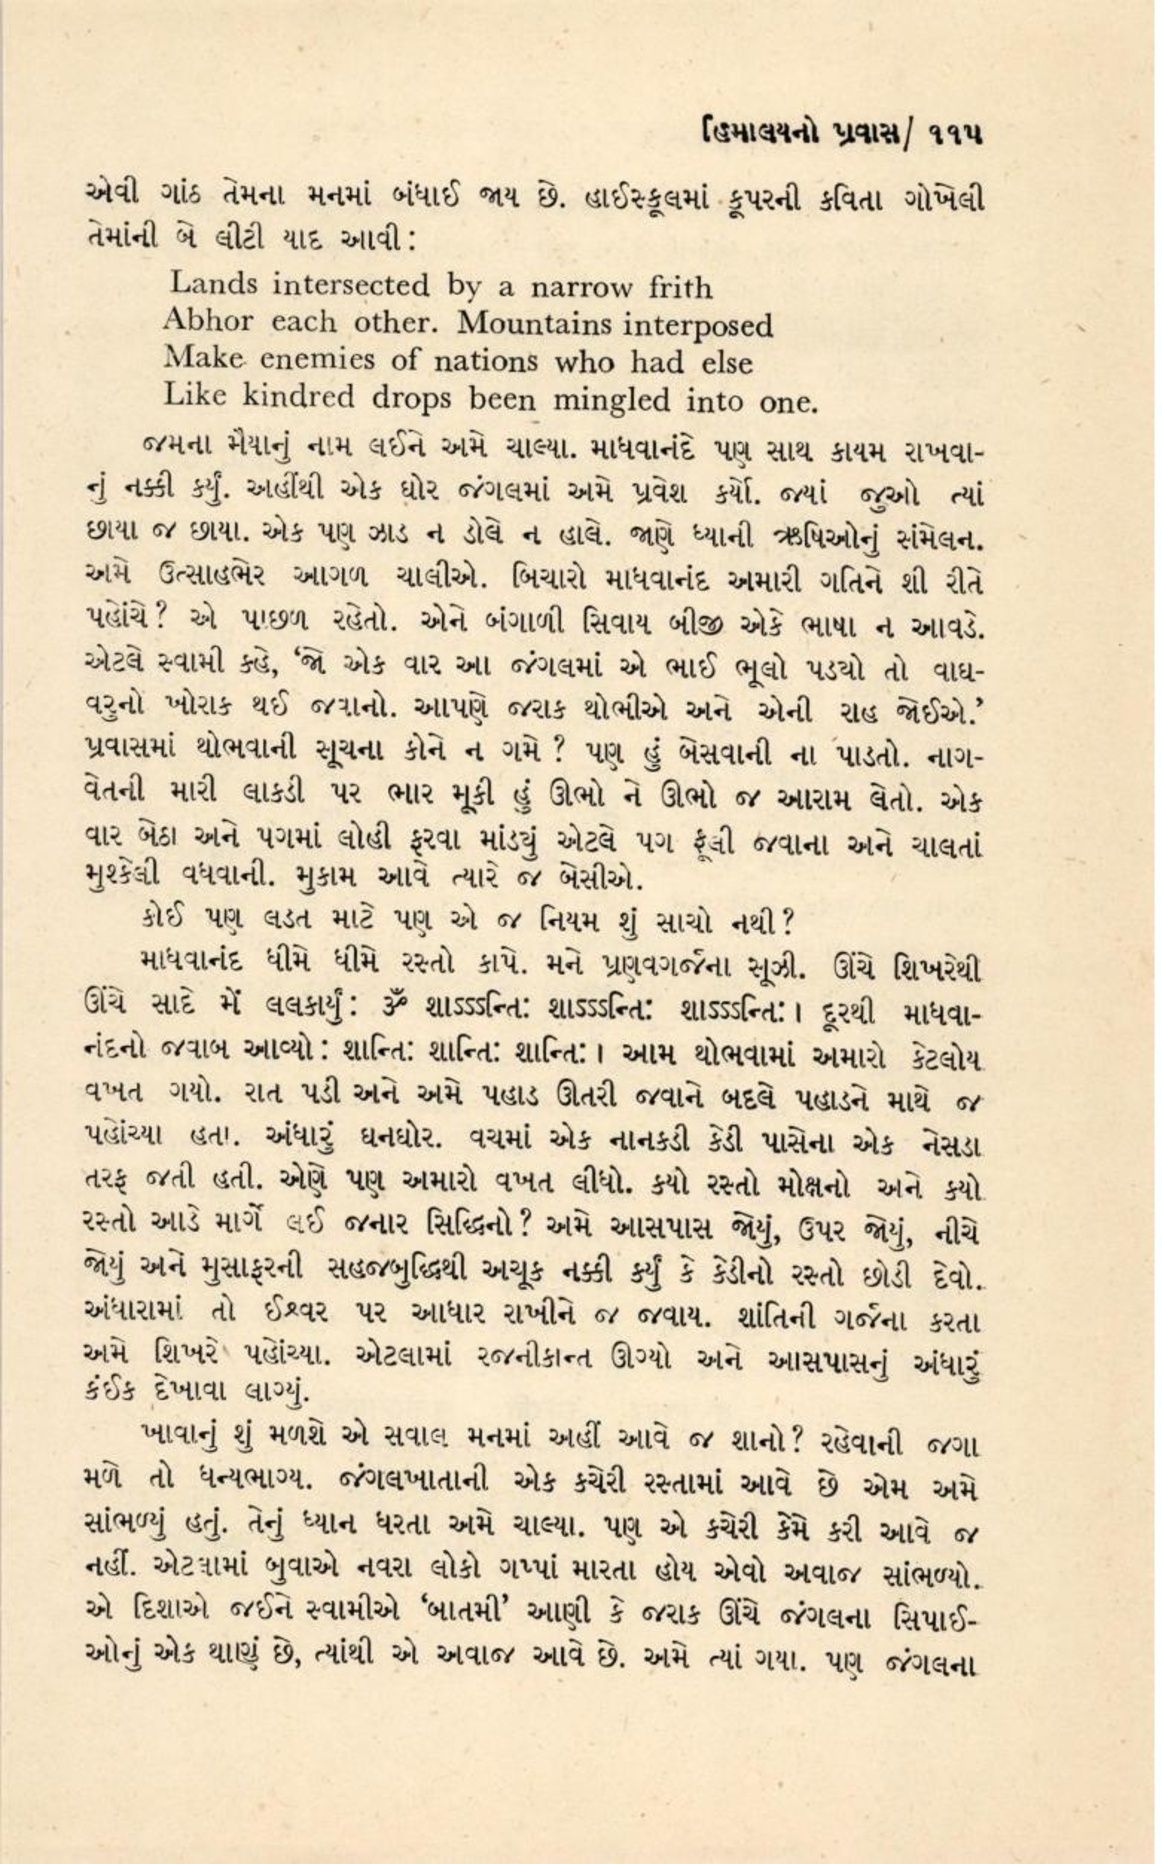 હિમાલયનો પ્રવાસ/ ૧૧૫
એવી ગાંઠ તેમના મનમાં બંધાઈ જાય છે. હાઈસ્કૂલમાં કૂપરની કવિતા ગોખેલી
તેમાંની બે લીટી યાદ આવી:
Lands intersected by a narrow frith
Abhor each other. Mountains interposed
Make enemies of nations who had else
Like kindred drops been mingled into one.
જમના મૈયાનું નામ લઈને અમે ચાલ્યા. માધવાનંદે પણ સાથ કાયમ રાખવા-
નું નક્કી કર્યું. અહીંથી એક ઘોર જંગલમાં અમે પ્રવેશ કર્યો. જ્યાં જુઓ ત્યાં
છાયા જ છાયા. એક પણ ઝાડ ન ડોલે ન હાલે. જાણે ધ્યાની ઋષિઓનું સંમેલન.
અમે ઉત્સાહભેર આગળ ચાલીએ. બિચારો માધવાનંદ અમારી ગતિને શી રીતે
પહોંચે? એ પાછળ રહેતો. એને બંગાળી સિવાય બીજી એકે ભાષા ન આવડે.
એટલે સ્વામી કહે, ‘જો એક વાર આ જંગલમાં એ ભાઈ ભૂલો પડ્યો તો વાઘ-
વરુનો ખોરાક થઈ જવાનો. આપણે જરાક થોભીએ અને એની રાહ જોઈએ.’
પ્રવાસમાં થોભવાની સૂચના કોને ન ગમે? પણ હું બેસવાની ના પાડતો. નાગ-
વેતની મારી લાકડી પર ભાર મૂકી હું ઊભો ને ઊભો જ આરામ લેતો. એક
વાર બેઠા અને પગમાં લોહી ફરવા માંડ્યું એટલે પગ ફૂલી જવાના અને ચાલતાં
મુશ્કેલી વધવાની. મુકામ આવે ત્યારે જ બેસીએ.
કોઈ પણ લડત માટે પણ એ જ નિયમ શું સાચો નથી?
માધવાનંદ ધીમે ધીમે રસ્તો કાપે. મને પ્રણવગર્જના સૂઝી. ઊંચે શિખરેથી
ઊંચે સાદે મેં લલકાર્યું: ૐ શાઽઽઽન્તિ: શાઽઽઽન્તિ: શાઽઽઽન્તિ:। દૂરથી માધવા-
નંદનો જવાબ આવ્યો: શાન્તિ: શાન્તિ: શાન્તિ:। આમ થોભવામાં અમારો કેટલોય
વખત ગયો. રાત પડી અને અમે પહાડ ઊતરી જવાને બદલે પહાડને માથે જ
પહોંચ્યા હતા. અંધારું ઘનઘોર. વચમાં એક નાનકડી કેડી પાસેના એક નેસડા
તરફ જતી હતી. એણે પણ અમારો વખત લીધો. કયો રસ્તો મોક્ષનો અને કયો
રસ્તો આડે માર્ગે લઈ જનાર સિદ્ધિનો? અમે આસપાસ જોયું, ઉપર જોયું, નીચે
જોયું અને મુસાફરની સહજબુદ્ધિથી અચૂક નક્કી કર્યું કે કેડીનો રસ્તો છોડી દેવો.
અંધારામાં તો ઈશ્વર પર આધાર રાખીને જ જવાય. શાંતિની ગર્જના કરતા
અમે શિખરે પહોંચ્યા. એટલામાં રજનીકાન્ત ઊગ્યો અને આસપાસનું અંધારું
કંઈક દેખાવા લાગ્યું.
ખાવાનું શું મળશે એ સવાલ મનમાં અહીં આવે જ શાનો? રહેવાની જગા
મળે તો ધન્યભાગ્ય. જંગલખાતાની એક કચેરી રસ્તામાં આવે છે એમ અમે
સાંભળ્યું હતું. તેનું ધ્યાન ધરતા અમે ચાલ્યા. પણ એ કચેરી કેમે કરી આવે જ
નહીં. એટલામાં બુવાએ નવરા લોકો ગપ્પાં મારતા હોય એવો અવાજ સાંભળ્યો.
એ દિશાએ જઈને સ્વામીએ ‘બાતમી’ આણી કે જરાક ઊંચે જંગલના સિપાઈ-
ઓનું એક થાણું છે, ત્યાંથી એ અવાજ આવે છે. અમે ત્યાં ગયા. પણ જંગલના